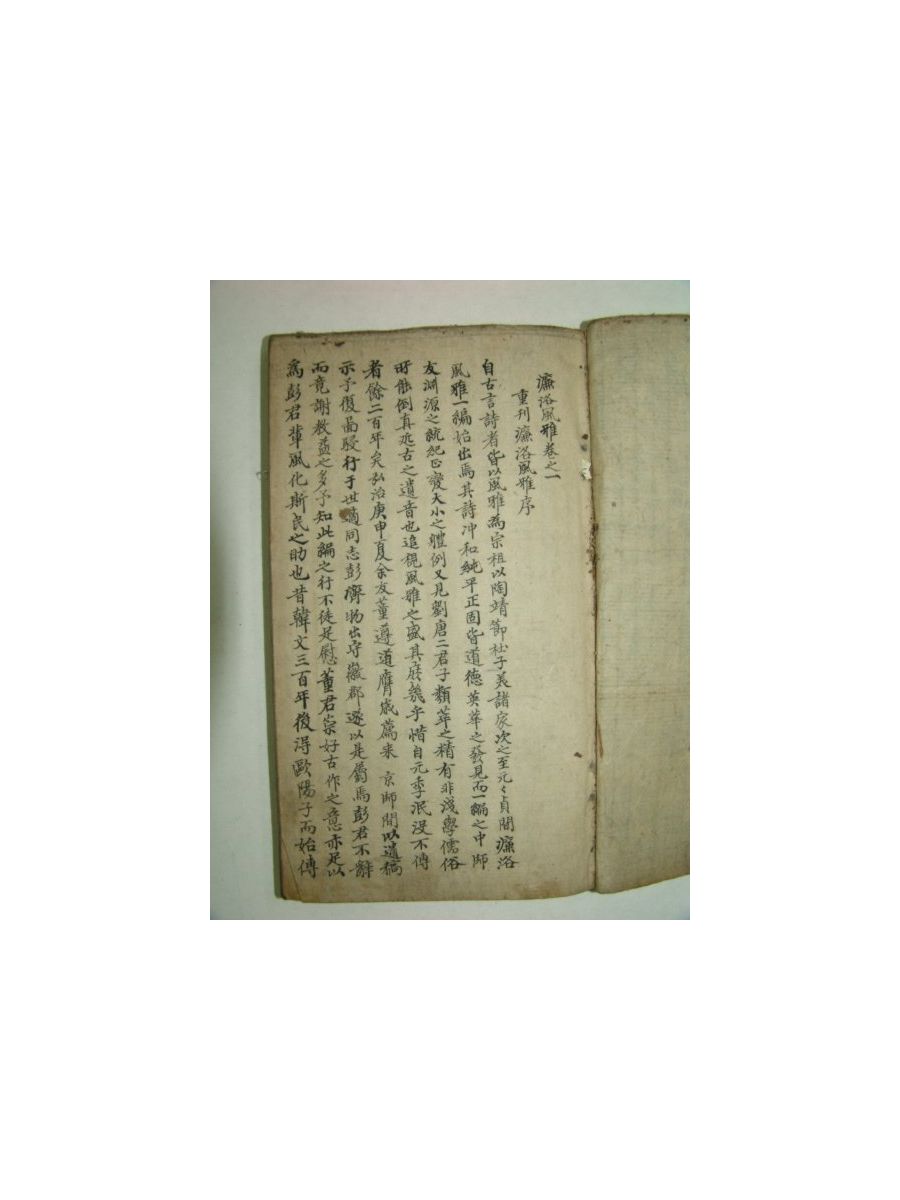 濂洛風雅卷之一
重刊濂洛風雅序
自古言詩者皆以風雅為宗祖以陶靖節杜子美諸家次之至元々貞間濂洛
風雅一編始出焉其詩冲和純平正固皆道德英華之發見而一編之中師
友淵源之統紀正變大小之軆例又見劉唐二君子類萃之精有非淺學儒俗
所能倒真近古之遺音也追覩風雅之盛其庶幾乎惜自元季泯没不傳
者餘二百年矣弘治庚申夏余友董遵道膺歳薦来京師間以遺稿
示予復啚鋟行于世適同志彭濟物出守徽郡遂以是屬焉彭君不辭
而竟謝教益之多予知此編之行不徒足慰董君崇好古作之意亦足以
為彭君軰風化斯民之助也昔韓文三百年後淂歐陽子而始傳